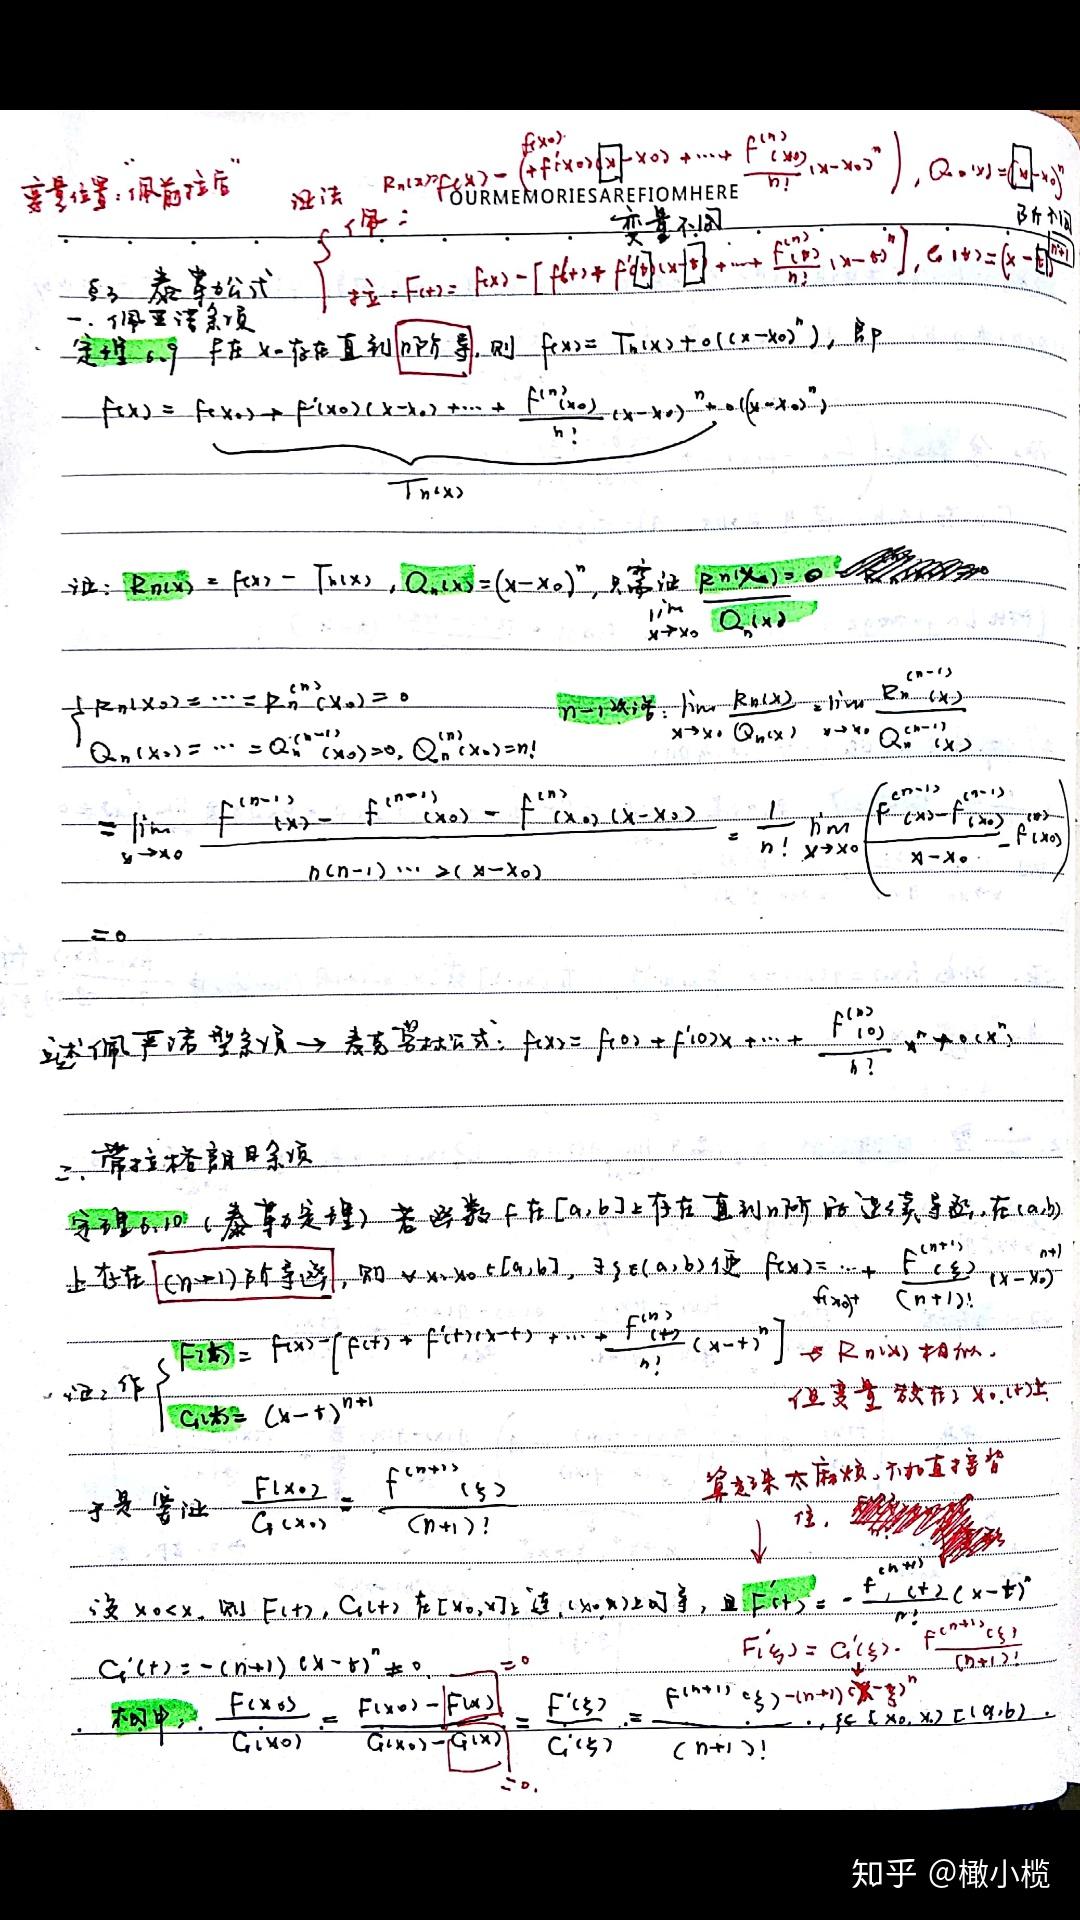 变量位置:"佩前拉后"
证法
佩: Rn(x)=f(x)-(f(x0)+f'(x0)(x-x0)+…+f^(n)(x0)/n!(x-x0)^n), Qn(x)=(x-x0)^n
OURMEMORIESAREFIOMHERE
变量不同
阶不同
拉:F(t)=f(x)-[f(t)+f'(t)(x-t)+…+f^(n)(t)/n!(x-t)^n], G(t)=(x-t)^(n+1)
§3 泰勒公式
一、佩亚诺余项
定理6.9 f在x0存在直到n阶导,则 f(x)=Tn(x)+o((x-x0)^n), 即
f(x)=f(x0)+f'(x0)(x-x0)+…+f^(n)(x0)/n!(x-x0)^n+o((x-x0)^n)
Tn(x)
证:Rn(x)=f(x)-Tn(x), Qn(x)=(x-x0)^n, 只需证 lim x→x0 Rn(x)/Qn(x)=0
Rn(x0)=…=Rn^(n)(x0)=0
Qn(x0)=…=Qn^(n-1)(x0)=0, Qn^(n)(x0)=n!
n-1次洛:lim x→x0 Rn(x)/Qn(x)=lim x→x0 Rn^(n-1)(x)/Qn^(n-1)(x)
=lim x→x0 f^(n-1)(x)-f^(n-1)(x0)-f^(n)(x0)(x-x0)/n(n-1)…2(x-x0)=1/n! lim x→x0 (f^(n-1)(x)-f^(n-1)(x0)/x-x0-f^(n)(x0))
=0
佩亚诺型余项→麦克劳林公式:f(x)=f(0)+f'(0)x+…+f^(n)(0)/n! x^n+o(x^n)
二、带拉格朗日余项
定理6.10(泰勒定理)若函数f在[a,b]上存在直到n阶的连续导函,在(a,b)
上存在(n+1)阶导函,则∀x,x0∈[a,b],∃ξ∈(a,b)使 f(x)=f(x0)+…+f^(n+1)(ξ)/(n+1)!(x-x0)^(n+1)
证:作 F(t)=f(x)-[f(t)+f'(t)(x-t)+…+f^(n)(t)/n!(x-t)^n] → Rn(x)相似,
但变量放在了x0(t)上
G(t)=(x-t)^(n+1)
于是需证 F(x0)/G(x0)=f^(n+1)(ξ)/(n+1)!
算起来太麻烦,不如直接背
住.
设x0<x,则F(t),G(t)在[x0,x]上连,(x0,x)上可导,且F'(t)=-f^(n+1)(t)/n!(x-t)^n
F'(ξ)=G'(ξ)·f^(n+1)(ξ)/(n+1)!
G'(t)=-(n+1)(x-t)^n≠0.
=0
柯中:F(x0)/G(x0)=F(x0)-F(x)/G(x0)-G(x)=F'(ξ)/G'(ξ)=f^(n+1)(ξ)/(n+1)!
-(n+1)(x-ξ)^n
=0.
知乎 @橄小榄